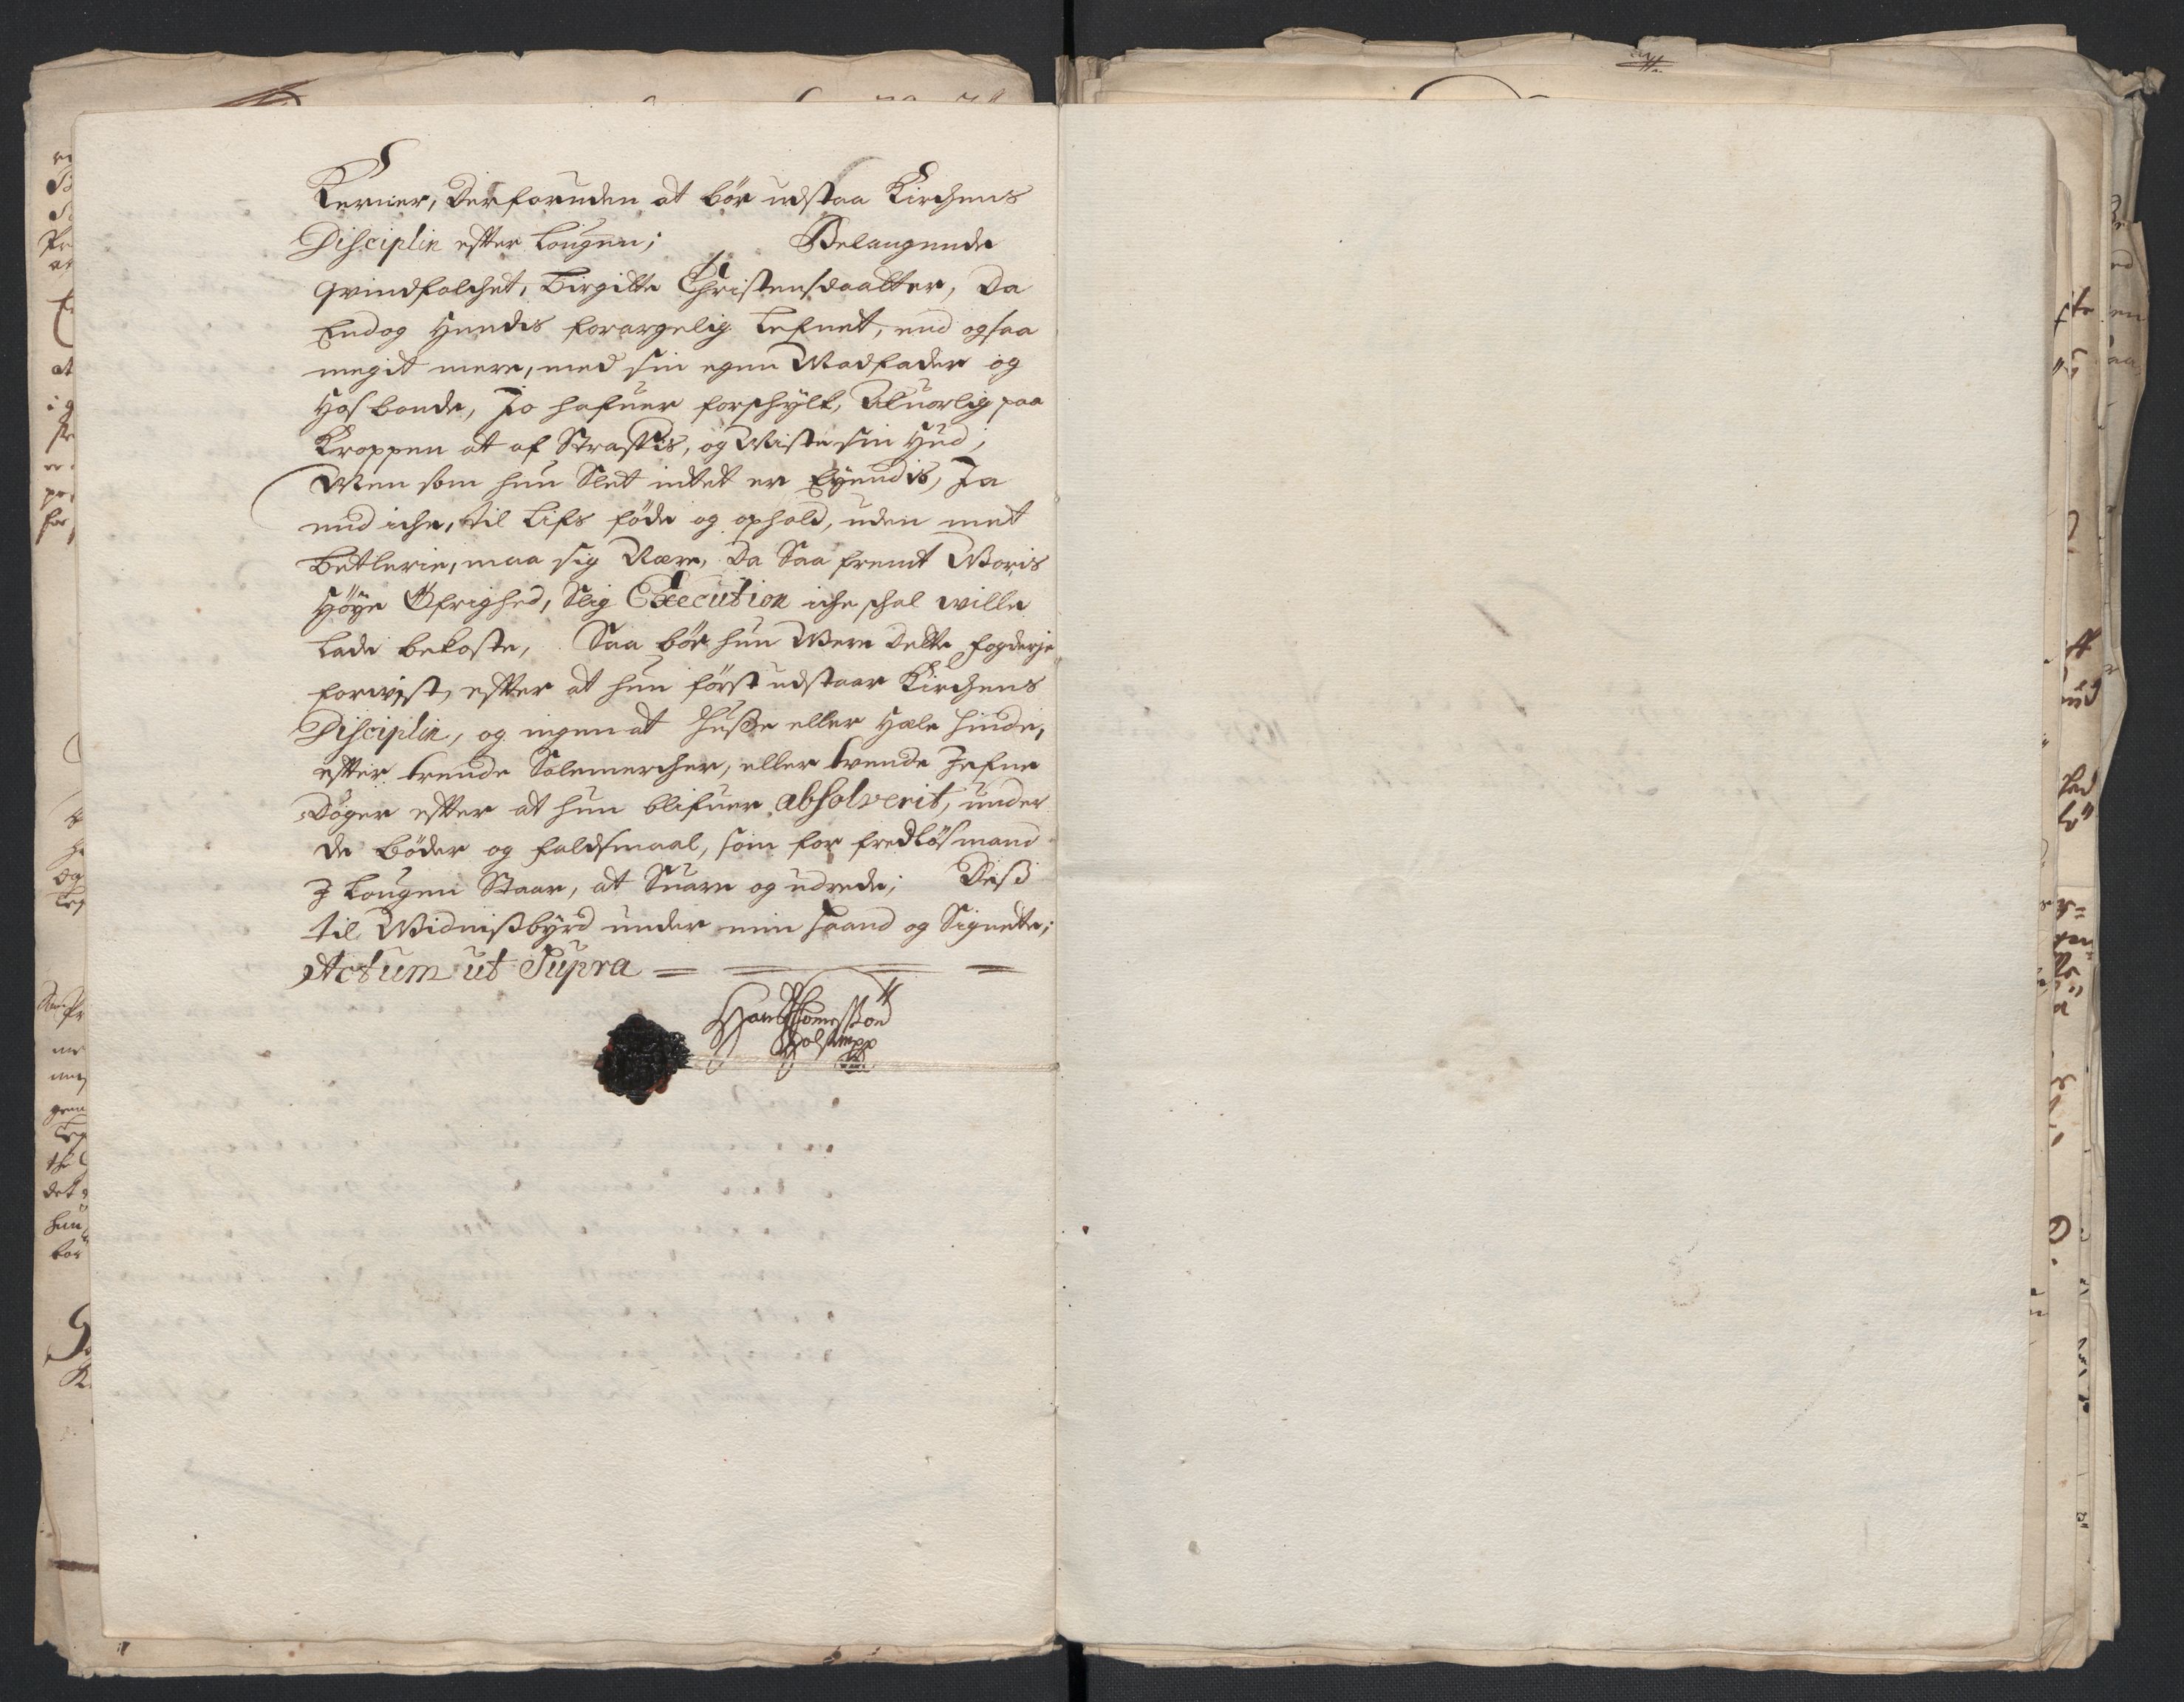 Kerner, Derforuden at bör udstaa Kirchens
Disciplin effter Lougen; Belangende
qvindfolchet, Birgitte Christensdaatter, Da
Endog Hendis forargelig Lefnet, end ogsaa
megit mere, med sin egen Madfader og
Hosbonde, Jo hafuer forschylt, Aluorlig paa
Kroppen at af Straffis, og Miste sin Hud;
Men som hun Slet intet er Eyendis, Ja
end iche, til Lifs föde og ophold, uden met
Betlerie, maa sig Nære, Da Saa fremt Woris
Höye Öfrighed, Slig Execution iche schal wille
Lade bekoste, Saa bör hun Were Dette fogderje
forwist, effter at hun först udstaar Kirchens
Disciplin, og ingen at Huße eller Hæle hinde,
effter trende Solemercher, eller trende Jefne
Döger effter at hun blifuer absolverit, under
de böder og faldsmaal, som for fredlösmand
J Lougen Staar, at Suare og udrede; Diß
til Widnißbyrd under min haand og Signette;
Actum ut Supra